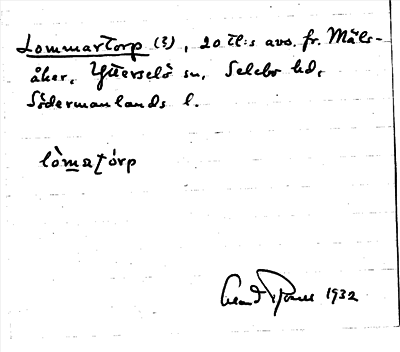 Lommartorp (3), 20 tl:s avs. fr. Mäls-
åker, Ytterselö sn, Selebo hd,
Södermanlands l.
lòmatórp
1932